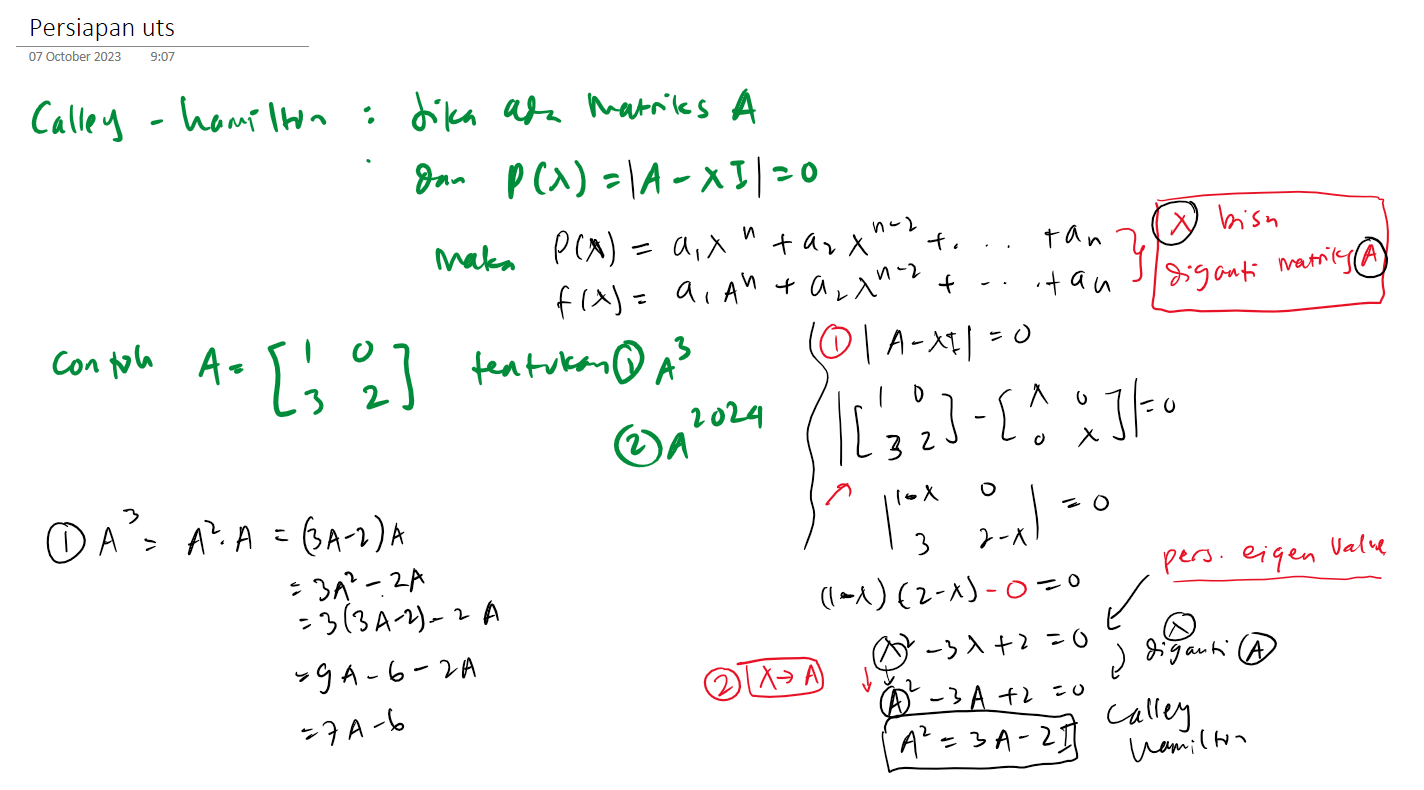 Persiapan uts
07 October 2023 9:07
Calley - hamilton : Jika ada Matriks A
dan P(λ) = |A - λI| = 0
Maka P(λ) = a₁λⁿ + a₂λⁿ⁻² + . . . + aₙ
f(λ) = a₁Aⁿ + a₂λⁿ⁻² + . . . + aₙ
λ bisa
diganti matriks A
Contoh A = [1 0
3 2] tentukan ① A³
② A²⁰²⁴
① |A - λI| = 0
|[1 0
3 2] - [λ 0
0 λ]| = 0
|1-λ 0
3 2-λ| = 0
(1-λ)(2-λ) - 0 = 0
pers. eigen Value
λ² - 3λ + 2 = 0
λ diganti A
② λ → A
A² - 3A + 2 = 0
Calley
hamilton
A² = 3A - 2I
① A³ = A². A = (3A-2)A
= 3A² - 2A
= 3(3A-2) - 2A
= 9A - 6 - 2A
= 7A - 6